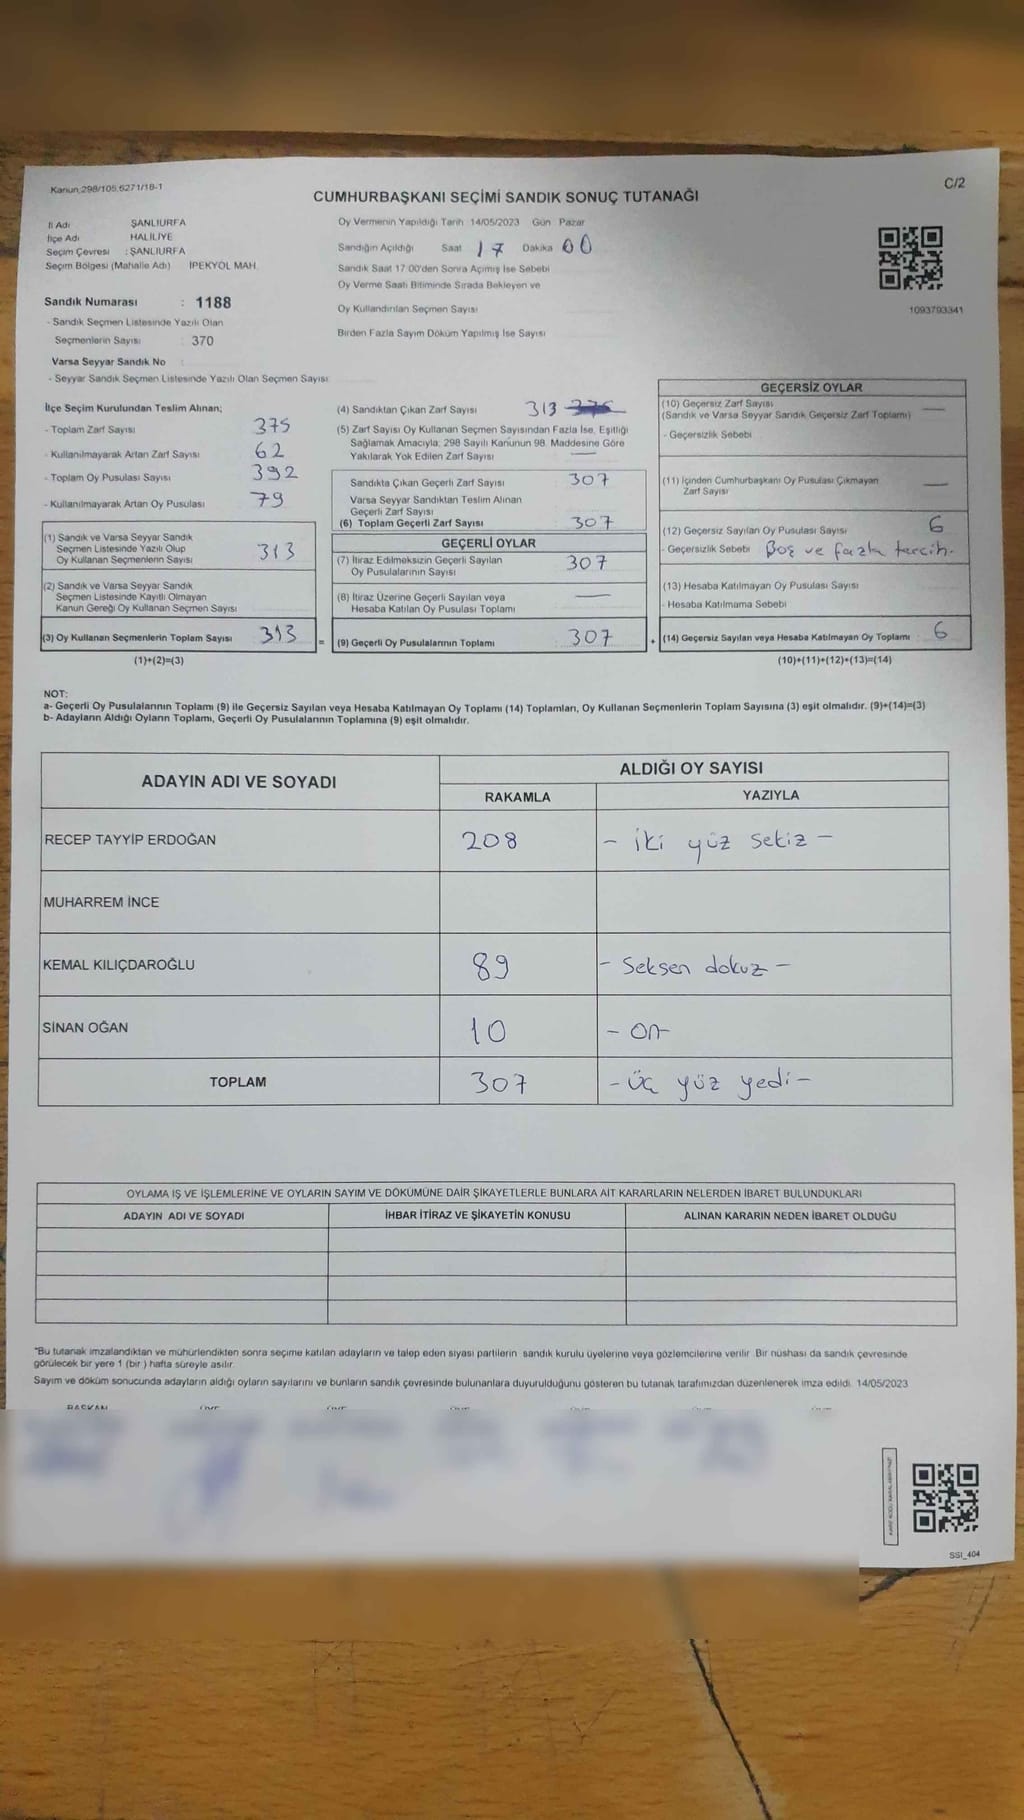 Kanun 298/105,6271/18-1
C/2
CUMHURBAŞKANI SEÇİMİ SANDIK SONUÇ TUTANAĞI
İl Adı ŞANLIURFA
İlçe Adı HALİLİYE
Seçim Çevresi : ŞANLIURFA
Seçim Bölgesi (Mahalle Adı) İPEKYOL MAH.
Oy Vermenin Yapıldığı Tarih 14/05/2023 Gün Pazar
Sandığın Açıldığı Saat 17 Dakika 00
Sandık Saat 17 00'den Sonra Açımış İse Sebebi
Oy Verme Saati Bitiminde Sırada Bekleyen ve
Oy Kullandırılan Seçmen Sayısı
Birden Fazla Sayım Döküm Yapılmış İse Sayısı
1093793341
Sandık Numarası : 1188
- Sandık Seçmen Listesinde Yazılı Olan
Seçmenlerin Sayısı : 370
Varsa Seyyar Sandık No :
- Seyyar Sandık Seçmen Listesinde Yazılı Olan Seçmen Sayısı
İlçe Seçim Kurulundan Teslim Alınan;
- Toplam Zarf Sayısı 375
- Kullanılmayarak Artan Zarf Sayısı 62
- Toplam Oy Pusulası Sayısı 392
- Kullanılmayarak Artan Oy Pusulası 79
(1) Sandık ve Varsa Seyyar Sandık
Seçmen Listesinde Yazılı Olup
Oy Kullanan Seçmenlerin Sayısı 313
(2) Sandık ve Varsa Seyyar Sandık
Seçmen Listesinde Kayıtlı Olmayan
Kanun Gereği Oy Kullanan Seçmen Sayısı
(3) Oy Kullanan Seçmenlerin Toplam Sayısı 313 =
(1)+(2)=(3)
(4) Sandıktan Çıkan Zarf Sayısı 313
(5) Zarf Sayısı Oy Kullanan Seçmen Sayısından Fazla İse, Eşitliği
Sağlamak Amacıyla; 298 Sayılı Kanunun 98. Maddesine Göre
Yakılarak Yok Edilen Zarf Sayısı —
Sandıkta Çıkan Geçerli Zarf Sayısı 307
Varsa Seyyar Sandıktan Teslim Alınan
Geçerli Zarf Sayısı
(6) Toplam Geçerli Zarf Sayısı 307
GEÇERLİ OYLAR
(7) İtiraz Edilmeksizin Geçerli Sayılan
Oy Pusulalarının Sayısı 307
(8) İtiraz Üzerine Geçerli Sayılan veya
Hesaba Katılan Oy Pusulası Toplamı —
(9) Geçerli Oy Pusulalarının Toplamı 307 +
GEÇERSİZ OYLAR
(10) Geçersiz Zarf Sayısı —
(Sandık ve Varsa Seyyar Sandık Geçersiz Zarf Toplamı)
- Geçersizlik Sebebi
(11) İçinden Cumhurbaşkanı Oy Pusulası Çıkmayan
Zarf Sayısı —
(12) Geçersiz Sayılan Oy Pusulası Sayısı 6
- Geçersizlik Sebebi Boş ve fazla tercih.
(13) Hesaba Katılmayan Oy Pusulası Sayısı
- Hesaba Katılmama Sebebi
(14) Geçersiz Sayılan veya Hesaba Katılmayan Oy Toplamı 6
(10)+(11)+(12)+(13)=(14)
NOT:
a- Geçerli Oy Pusulalarının Toplamı (9) ile Geçersiz Sayılan veya Hesaba Katılmayan Oy Toplamı (14) Toplamları, Oy Kullanan Seçmenlerin Toplam Sayısına (3) eşit olmalıdır. (9)+(14)=(3)
b- Adayların Aldığı Oyların Toplamı, Geçerli Oy Pusulalarının Toplamına (9) eşit olmalıdır.
ADAYIN ADI VE SOYADI
ALDIĞI OY SAYISI
RAKAMLA YAZIYLA
RECEP TAYYİP ERDOĞAN 208 - iki yüz sekiz -
MUHARREM İNCE
KEMAL KILIÇDAROĞLU 89 - Seksen dokuz -
SİNAN OĞAN 10 - on -
TOPLAM 307 - üç yüz yedi -
OYLAMA İŞ VE İŞLEMLERİNE VE OYLARIN SAYIM VE DÖKÜMÜNE DAİR ŞİKAYETLERLE BUNLARA AİT KARARLARIN NELERDEN İBARET BULUNDUKLARI
ADAYIN ADI VE SOYADI İHBAR İTİRAZ VE ŞİKAYETİN KONUSU ALINAN KARARIN NEDEN İBARET OLDUĞU
"Bu tutanak imzalandıktan ve mühürlendikten sonra seçime katılan adayların ve talep eden siyasi partilerin sandık kurulu üyelerine veya gözlemcilerine verilir. Bir nüshası da sandık çevresinde
görülecek bir yere 1 (bir ) hafta süreyle asılır.
Sayım ve döküm sonucunda adayların aldığı oyların sayılarını ve bunların sandık çevresinde bulunanlara duyurulduğunu gösteren bu tutanak tarafımızdan düzenlenerek imza edildi. 14/05/2023
BAŞKAN
SSI_404